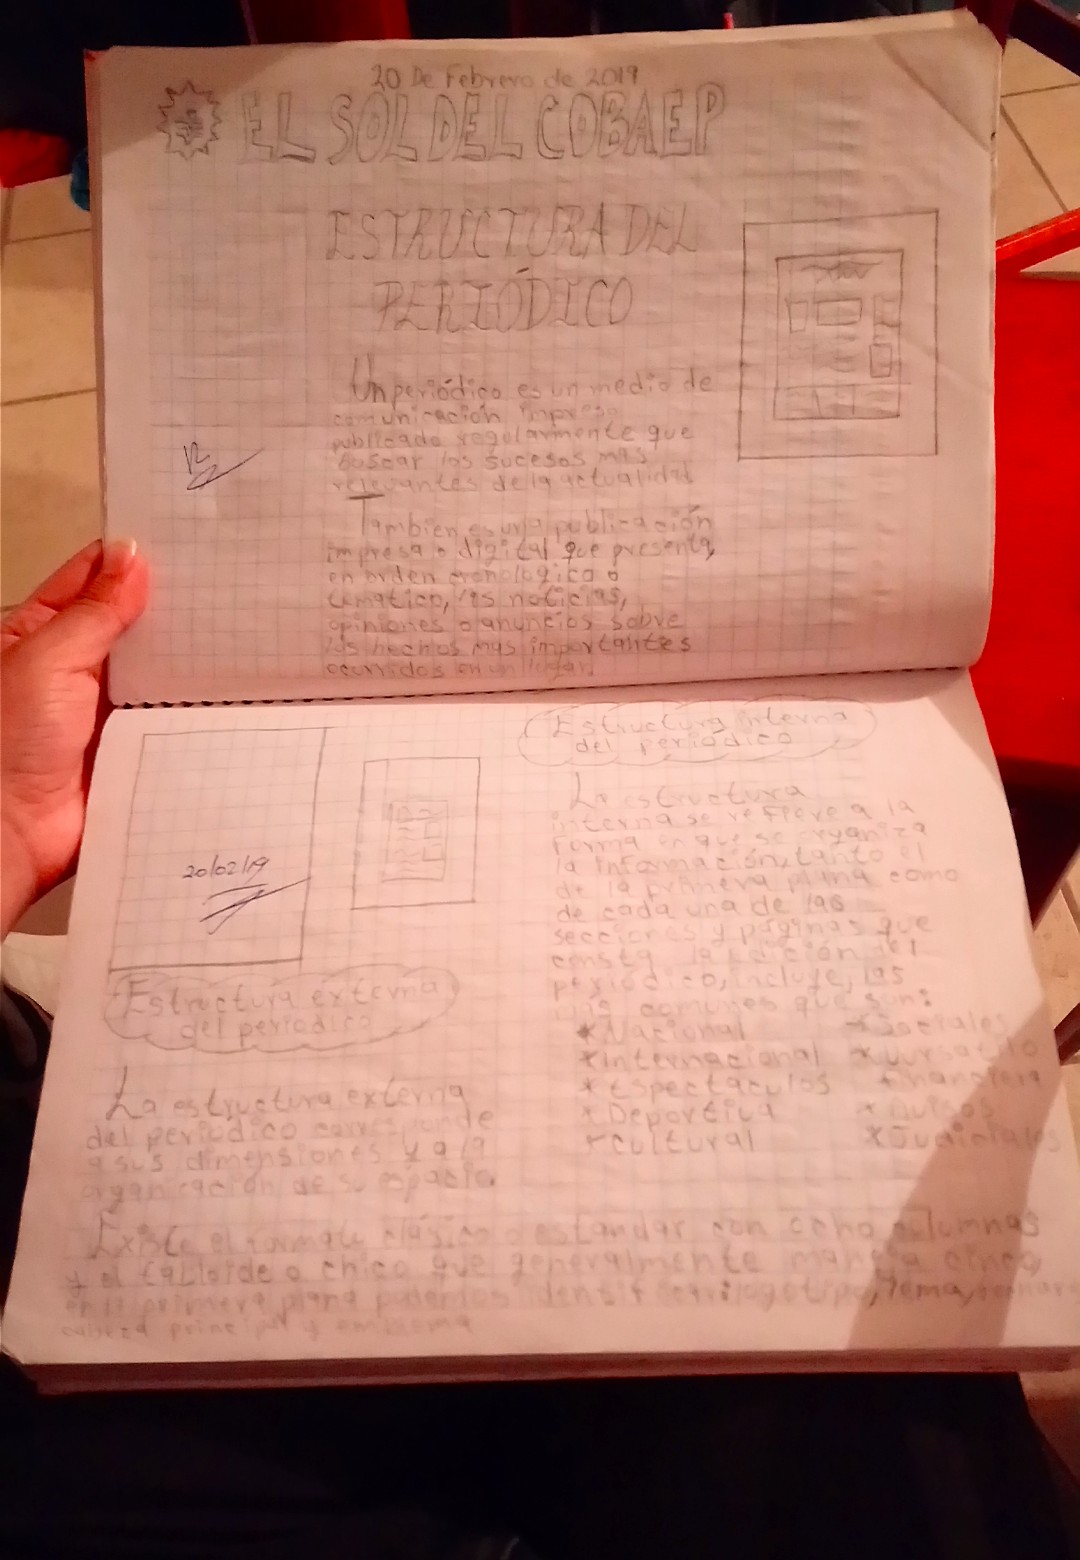 20 De Febrero de 2019
EL SOL DEL COBAEP
ESTRUCTURA DEL
PERIÓDICO
Un periódico es un medio de
comunicación impreso
publicado regularmente que
buscar los sucesos mas
relevantes de la actualidad
Tambien es una publicación
impresa o digital que presenta,
en orden cronologico o
tematico, las noticias,
opiniones o anuncios sobre
los hechos mas importantes
ocurridos en un lugar.
20/02/19
Estructura externa
del periodico
La estructura externa
del periodico corresponde
a sus dimensiones y a la
organización de su espacio.
Existe el formato clásico o estandar con ocho columnas
y el tabloide o chico que generalmente maneja cinco,
en la primera plana podemos identificar: logotipo, lema,
cabeza principal y emblema
Estructura interna
del periodico
La estructura
interna se refiere a la
forma en que se organiza
la información, tanto el
de la primera plana como
de cada una de las
secciones y páginas que
consta la edición del
periódico, incluye, las
más comunes que son:
*Nacional *Sociales
*Internacional *
*Espectáculos *Financiera
*Deportiva *Avisos
*Cultural *Judiciales